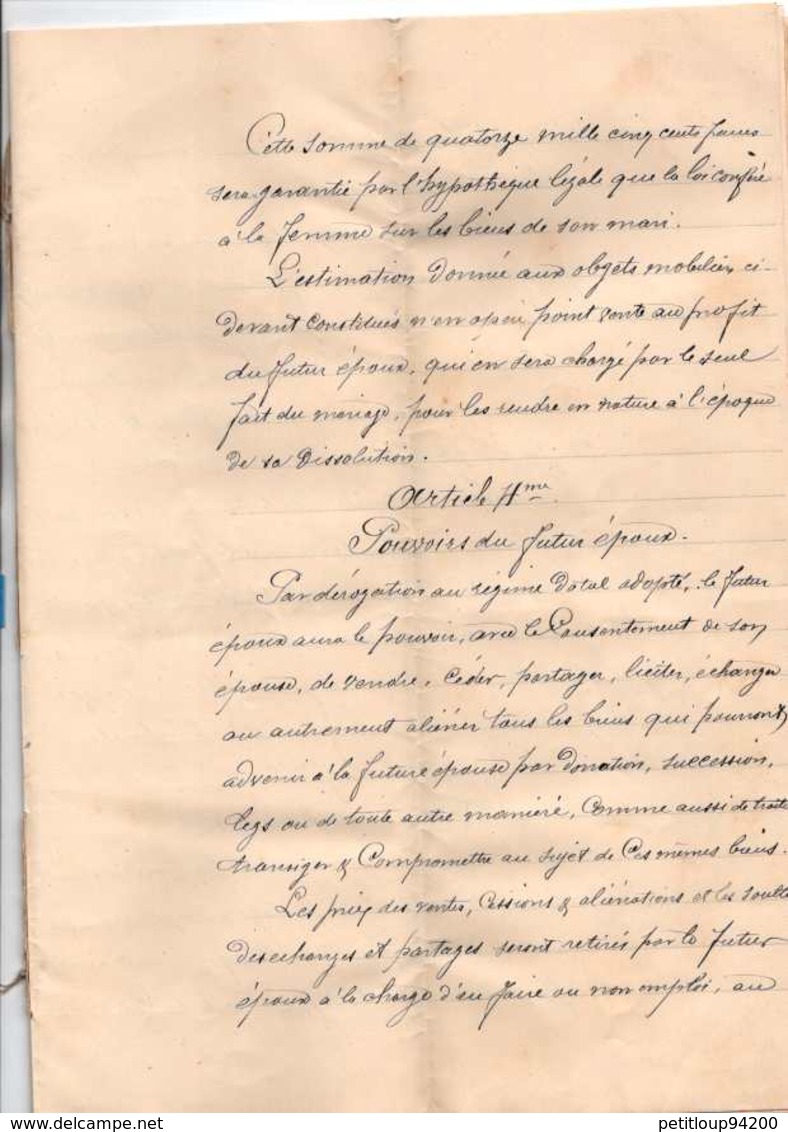 Cette somme de quatorze mille cinq cents francs
sera garantie par l'hypothèque légale que la loi confère
à la femme sur les biens de son mari.
L'estimation donnée aux objets mobiliers ci-
devant constitués n'en opère point vente au profit
du futur époux, qui en sera chargé par le seul
fait du mariage, pour les rendre en nature à l'époque
de sa dissolution.
Article 4me.
Pouvoirs du futur époux.
Par dérogation au régime dotal adopté, le futur
époux aura le pouvoir, avec le Consentement de son
épouse, de vendre, céder, partager, liciter, échanger
ou autrement aliéner tous les biens qui pourront
advenir à la future épouse par donation, succession,
legs ou de toute autre manière, comme aussi de traiter
transiger & Compromettre au sujet de Ces mêmes biens.
Les prix des ventes, Cessions & aliénations et les soultes
des echanges et partages seront retirés par le futur
époux à la charge d'en faire ou non emploi, au
petitloup94200